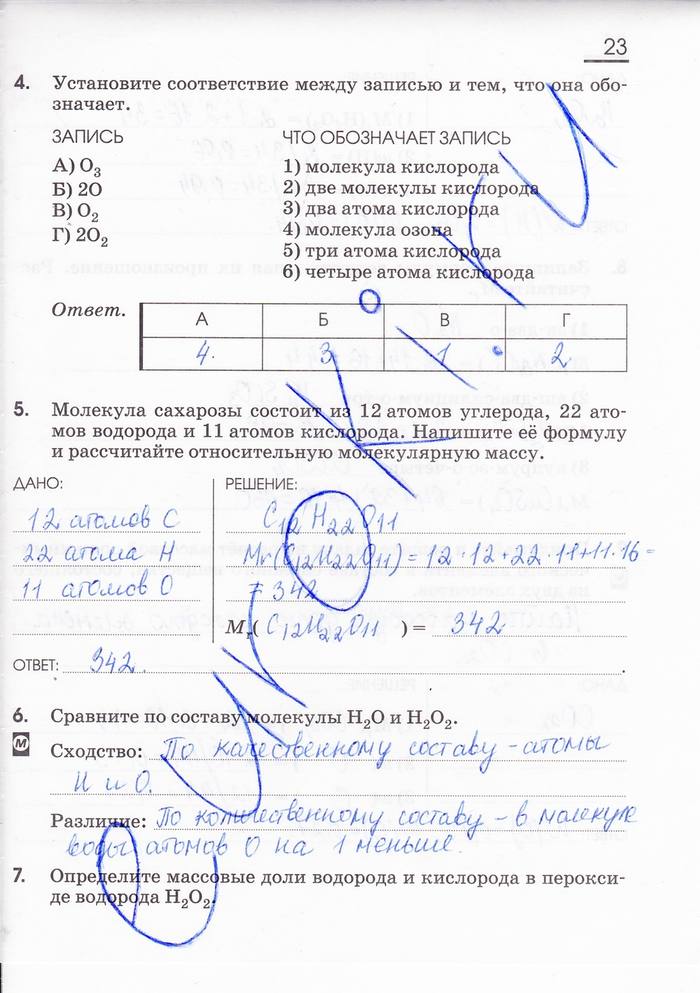 23
4. Установите соответствие между записью и тем, что она обо-
значает.
ЗАПИСЬ
ЧТО ОБОЗНАЧАЕТ ЗАПИСЬ
А) O₃
1) молекула кислорода
Б) 2O
2) две молекулы кислорода
В) O₂
3) два атома кислорода
Г) 2O₂
4) молекула озона
5) три атома кислорода
6) четыре атома кислорода
Ответ.
А Б В Г
4. 3 1. 2.
5. Молекула сахарозы состоит из 12 атомов углерода, 22 ато-
мов водорода и 11 атомов кислорода. Напишите её формулу
и рассчитайте относительную молекулярную массу.
ДАНО:
РЕШЕНИЕ:
12 атомов C
C₁₂H₂₂O₁₁
22 атома H
Mr(C₁₂H₂₂O₁₁) = 12·12+22·11+11·16 =
11 атомов O
= 342
Mᵣ( C₁₂H₂₂O₁₁ ) = 342
ОТВЕТ: 342.
6. Сравните по составу молекулы H₂O и H₂O₂.
М
Сходство: По качественному составу - атомы
H и O.
Различие: По количественному составу - в молекуле
воды атомов O на 1 меньше.
7. Определите массовые доли водорода и кислорода в перокси-
де водорода H₂O₂.